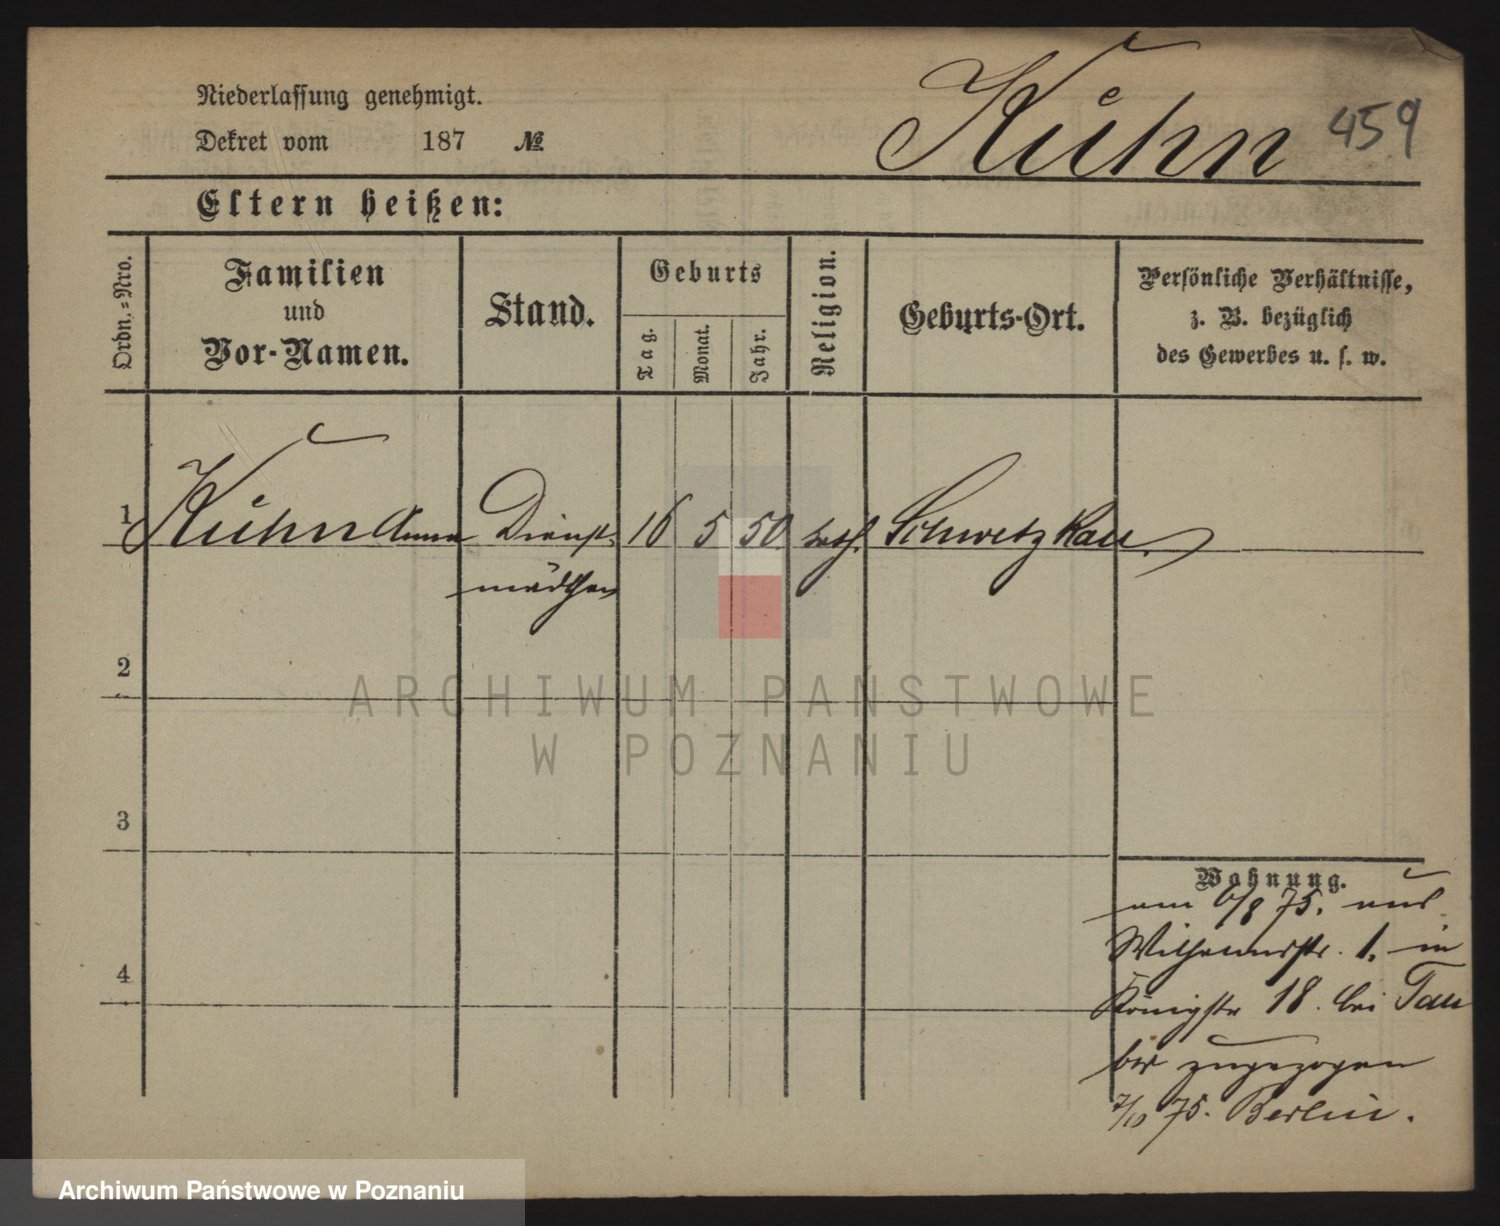 Niederlassung genehmigt.
Dekret vom 187 №
Kuhn 459
Eltern heißen:
Ordn.=Nro.
Familien
und
Vor-Namen.
Stand.
Geburts
Tag.
Monat.
Jahr.
Religion.
Geburts-Ort.
Persönliche Verhältnisse,
z. B. bezüglich
des Gewerbes u. s. w.
1 Kuhn Anna Dienst- 16 5 50. kath. Schwetzkau.
mädchen
2
3
4
Wohnung.
am 6/8 75. aus
Wilhelmstr. 1. in
Königstr 18. bei Tau
ber zugezogen
7/10 75. Berlin.
ARCHIWUM PAŃSTWOWE
W POZNANIU
Archiwum Państwowe w Poznaniu